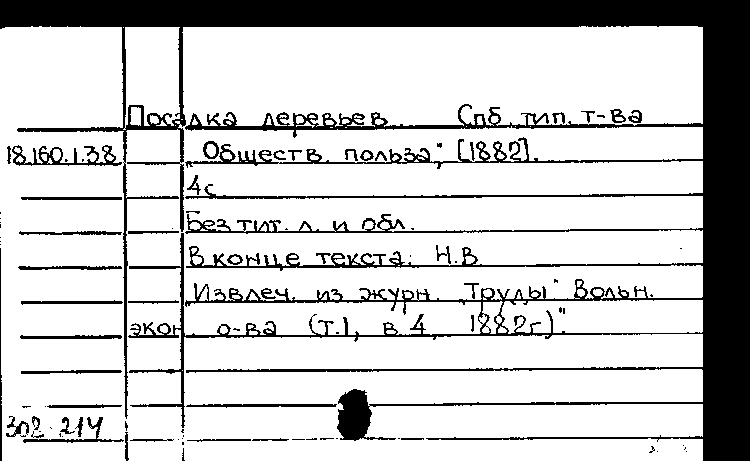 Посадка деревьев. Спб. тип. т-ва
18.160.1.38 „Обществ. польза", [1882].
4 с.
Без тит. л. и обл.
В конце текста: Н.В.
„Извлеч. из журн. „Труды" Вольн.
экон. о-ва (т.1, в. 4, 1882г.)".
302 214